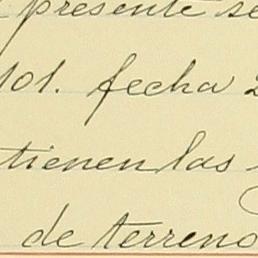 presente se
101. fecha 2
tienen las
de terreno